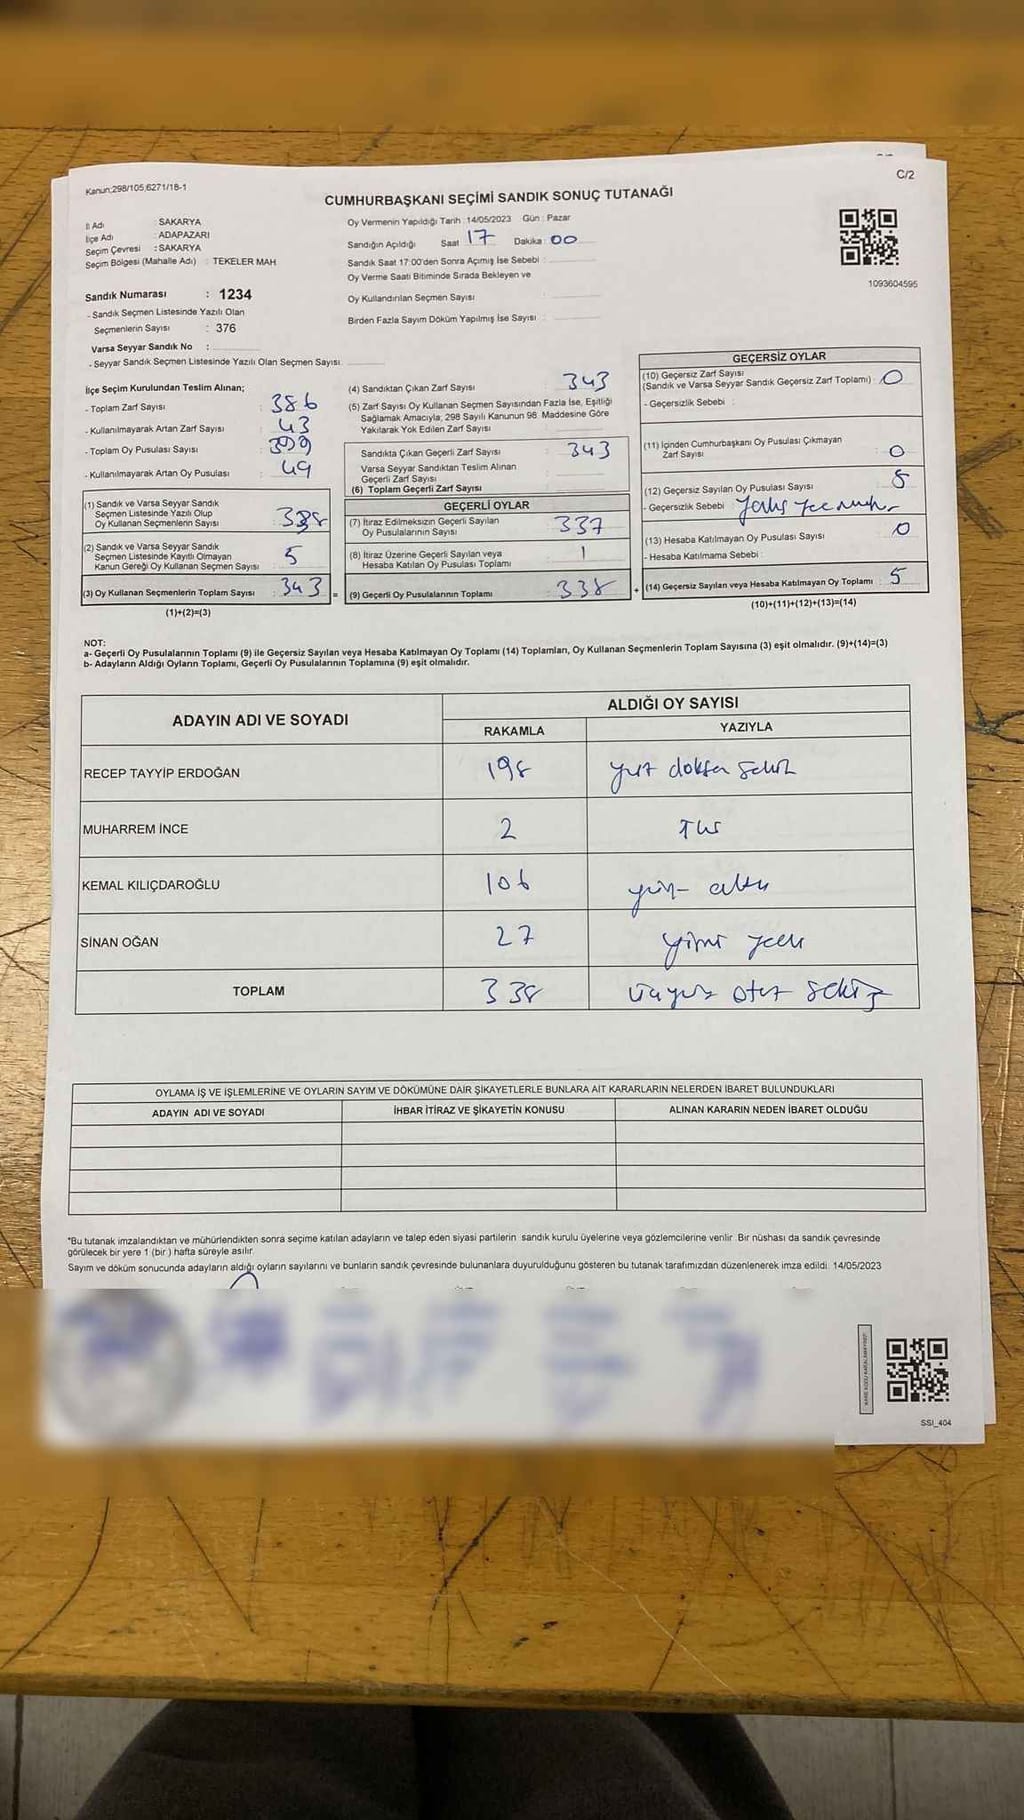 Kanun;298/105;6271/18-1
C/2
CUMHURBAŞKANI SEÇİMİ SANDIK SONUÇ TUTANAĞI
İl Adı : SAKARYA
İlçe Adı : ADAPAZARI
Seçim Çevresi : SAKARYA
Seçim Bölgesi (Mahalle Adı) : TEKELER MAH.
Sandık Numarası : 1234
- Sandık Seçmen Listesinde Yazılı Olan
Seçmenlerin Sayısı : 376
Varsa Seyyar Sandık No :
- Seyyar Sandık Seçmen Listesinde Yazılı Olan Seçmen Sayısı:
Oy Vermenin Yapıldığı Tarih : 14/05/2023 Gün : Pazar
Sandığın Açıldığı Saat : 17 Dakika : 00
Sandık Saat 17:00'den Sonra Açımış İse Sebebi :
Oy Verme Saati Bitiminde Sırada Bekleyen ve
Oy Kullandırılan Seçmen Sayısı :
Birden Fazla Sayım Döküm Yapılmış İse Sayısı :
1093604595
İlçe Seçim Kurulundan Teslim Alınan;
- Toplam Zarf Sayısı : 386
- Kullanılmayarak Artan Zarf Sayısı : 43
- Toplam Oy Pusulası Sayısı :
- Kullanılmayarak Artan Oy Pusulası : 49
(1) Sandık ve Varsa Seyyar Sandık
Seçmen Listesinde Yazılı Olup
Oy Kullanan Seçmenlerin Sayısı : 338
(2) Sandık ve Varsa Seyyar Sandık
Seçmen Listesinde Kayıtlı Olmayan
Kanun Gereği Oy Kullanan Seçmen Sayısı : 5
(3) Oy Kullanan Seçmenlerin Toplam Sayısı : 343 =
(1)+(2)=(3)
(4) Sandıktan Çıkan Zarf Sayısı : 343
(5) Zarf Sayısı Oy Kullanan Seçmen Sayısından Fazla İse, Eşitliği
Sağlamak Amacıyla, 298 Sayılı Kanunun 98. Maddesine Göre
Yakılarak Yok Edilen Zarf Sayısı :
Sandıkta Çıkan Geçerli Zarf Sayısı : 343
Varsa Seyyar Sandıktan Teslim Alınan
Geçerli Zarf Sayısı :
(6) Toplam Geçerli Zarf Sayısı :
GEÇERLİ OYLAR
(7) İtiraz Edilmeksizin Geçerli Sayılan
Oy Pusulalarının Sayısı : 337
(8) İtiraz Üzerine Geçerli Sayılan veya
Hesaba Katılan Oy Pusulası Toplamı : 1
(9) Geçerli Oy Pusulalarının Toplamı : 338 +
GEÇERSİZ OYLAR
(10) Geçersiz Zarf Sayısı
(Sandık ve Varsa Seyyar Sandık Geçersiz Zarf Toplamı) : 0
- Geçersizlik Sebebi :
(11) İçinden Cumhurbaşkanı Oy Pusulası Çıkmayan
Zarf Sayısı : 0
(12) Geçersiz Sayılan Oy Pusulası Sayısı :
- Geçersizlik Sebebi :
(13) Hesaba Katılmayan Oy Pusulası Sayısı : 0
- Hesaba Katılmama Sebebi :
(14) Geçersiz Sayılan veya Hesaba Katılmayan Oy Toplamı : 5
(10)+(11)+(12)+(13)=(14)
NOT:
a- Geçerli Oy Pusulalarının Toplamı (9) ile Geçersiz Sayılan veya Hesaba Katılmayan Oy Toplamı (14) Toplamları, Oy Kullanan Seçmenlerin Toplam Sayısına (3) eşit olmalıdır. (9)+(14)=(3)
b- Adayların Aldığı Oyların Toplamı, Geçerli Oy Pusulalarının Toplamına (9) eşit olmalıdır.
ADAYIN ADI VE SOYADI
ALDIĞI OY SAYISI
RAKAMLA YAZIYLA
RECEP TAYYİP ERDOĞAN 198 yüz doksan sekiz
MUHARREM İNCE 2
KEMAL KILIÇDAROĞLU 106 yüz altı
SİNAN OĞAN 27 yirmi yedi
TOPLAM 338 üçyüz otuz sekiz
OYLAMA İŞ VE İŞLEMLERİNE VE OYLARIN SAYIM VE DÖKÜMÜNE DAİR ŞİKAYETLERLE BUNLARA AİT KARARLARIN NELERDEN İBARET BULUNDUKLARI
ADAYIN ADI VE SOYADI İHBAR İTİRAZ VE ŞİKAYETİN KONUSU ALINAN KARARIN NEDEN İBARET OLDUĞU
*Bu tutanak imzalandıktan ve mühürlendikten sonra seçime katılan adayların ve talep eden siyasi partilerin sandık kurulu üyelerine veya gözlemcilerine verilir. Bir nüshası da sandık çevresinde
görülecek bir yere 1 (bir ) hafta süreyle asılır.
Sayım ve döküm sonucunda adayların aldığı oyların sayılarını ve bunların sandık çevresinde bulunanlara duyurulduğunu gösteren bu tutanak tarafımızdan düzenlenerek imza edildi. 14/05/2023
SSI_404